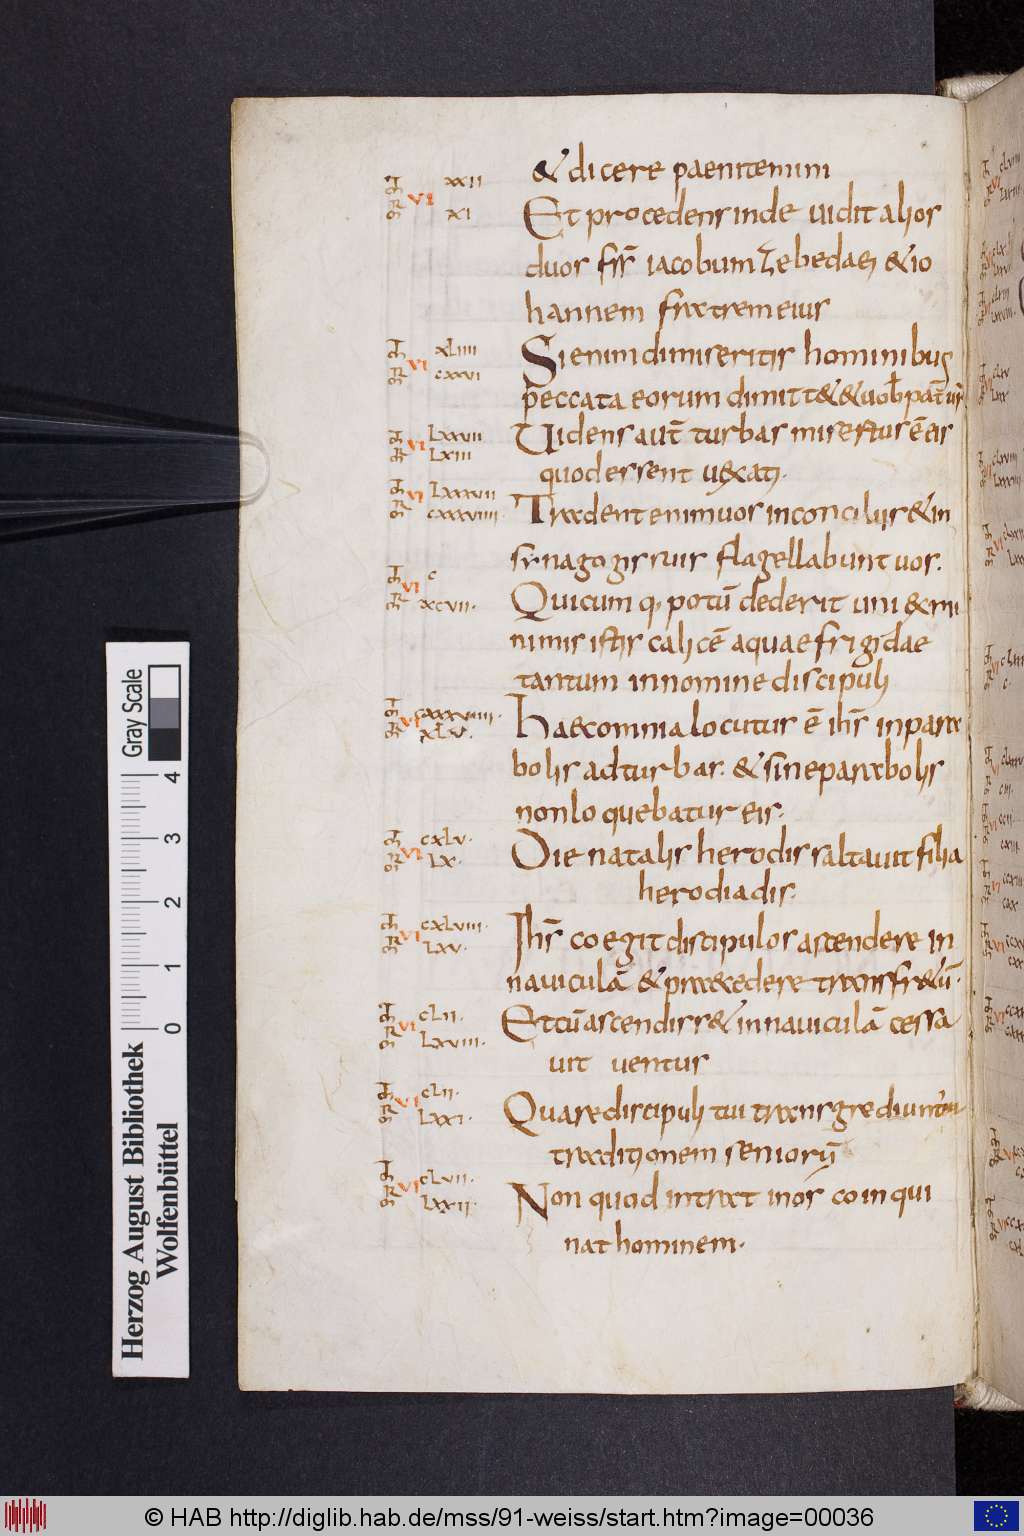 & dicere paenitemini
Et procedens inde uidit alios
duos frs̄ iacobum Zebedaei & io
hannem fratrem eius
Si enim dimiseritis hominibus
peccata eorum dimitt& & uob̄ pat̄ ur̄
Uidens aut̄ turbas misertus ē eis
quod essent uexati.
Tradent enim uos in conciliis & in
synagogis suis flagellabunt uos.
Quicumq, potū dederit uni ex mi
nimis istis calicē aquae frigidae
tantum in nomine discipuli
Haec omnia locutus ē ihs̄ in para
bolis ad turbas. & sine parabolis
non loquebatur eis.
Die natalis herodis saltauit filia
herodiadis.
Ihs̄ coegit discipulos ascendere in
nauiculā & praecedere trans fr&ū.
Et cū ascendiss& in nauiculā cessa
uit uentus
Quare discipuli tui transgrediuntur
traditionem seniorū
Non quod intrat in os coinqui
nat hominem.
VI XXII
XI
VI XLIIII
CXXVI
VI LXXVII
LXIII
VI LXXXVII
CXXXVIIII.
VI C
XCVII.
VI CXXXVIIII.
XLV.
VI CXLV.
LX.
VI CXLVIII.
LXV.
VI CLII.
LXVIII.
VI CLII.
LXXI.
VI CLVII.
LXXII.
Gray Scale
0 1 2 3 4
Herzog August Bibliothek
Wolfenbüttel
© HAB http://diglib.hab.de/mss/91-weiss/start.htm?image=00036